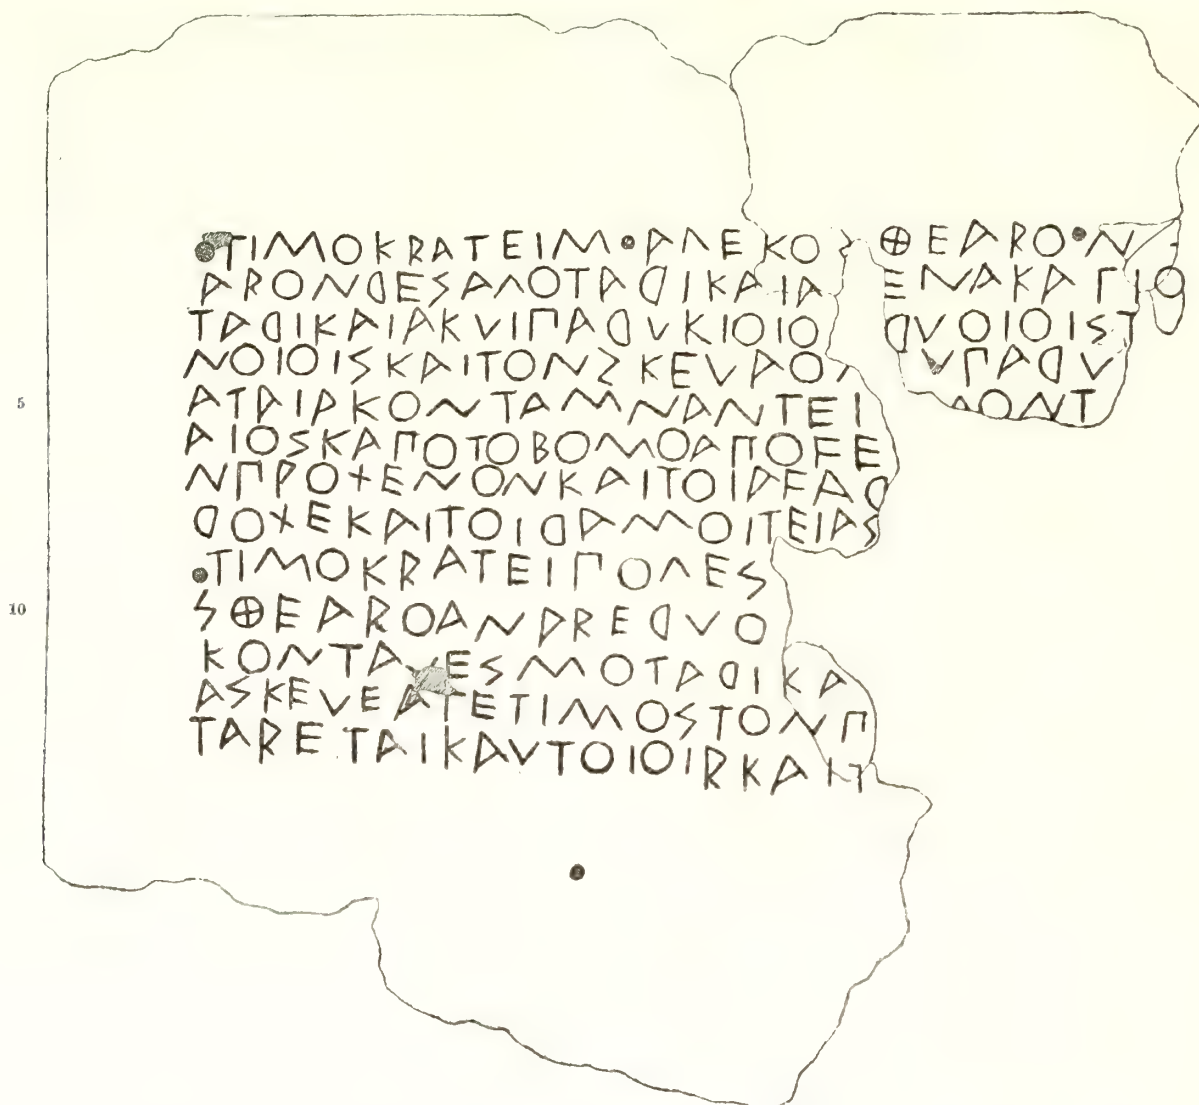 ΤΙΜΟΚΡΑΤΕΙΜ•ΑΛΕΚΟ ΘΕΑΡΟ•Ν
ΑΡΟΝΔΕSΑΛΟΤΑΔΙΚΑΙΑ ΕΝΑΚΑΓΙΟ
ΤΑΔΙΚΑΙΑΚVΙΠΑΔVΚΙΟΙΟ ΔVΟΙΟΙSΤ
ΝΟΙΟΙSΚΑΙΤΟΝΣΚΕVΑΟ VΠΑΔV
5 ΑΤΑΙΑΚΟΝΤΑΜΝΑΝΤΕΙ ΔΟΝΤ
ΑΙΟSΚΑΠΟΤΟΒΟΜΟΑΠΟϜΕ
ΝΠΡΟ+ΕΝΟΝΚΑΙΤΟΙΑϜΑΔ
ΔΟ+ΕΚΑΙΤΟΙΔΑΜΟΙΤΕΙΑS
•ΤΙΜΟΚΡΑΤΕΙΓΟΛΕS
10 SΘΕΑΡΟΑΝΔΡΕΔVΟ
ΚΟΝΤΑ ΕSΜΟΤΑΔΙΚΑ
ΑSΚΕVΕΑΤΕΤΙΜΟSΤΟΝΠ
ΤΑΡΕΤΑΙΚΑVΤΟΙΟΙΡΚΑΙ